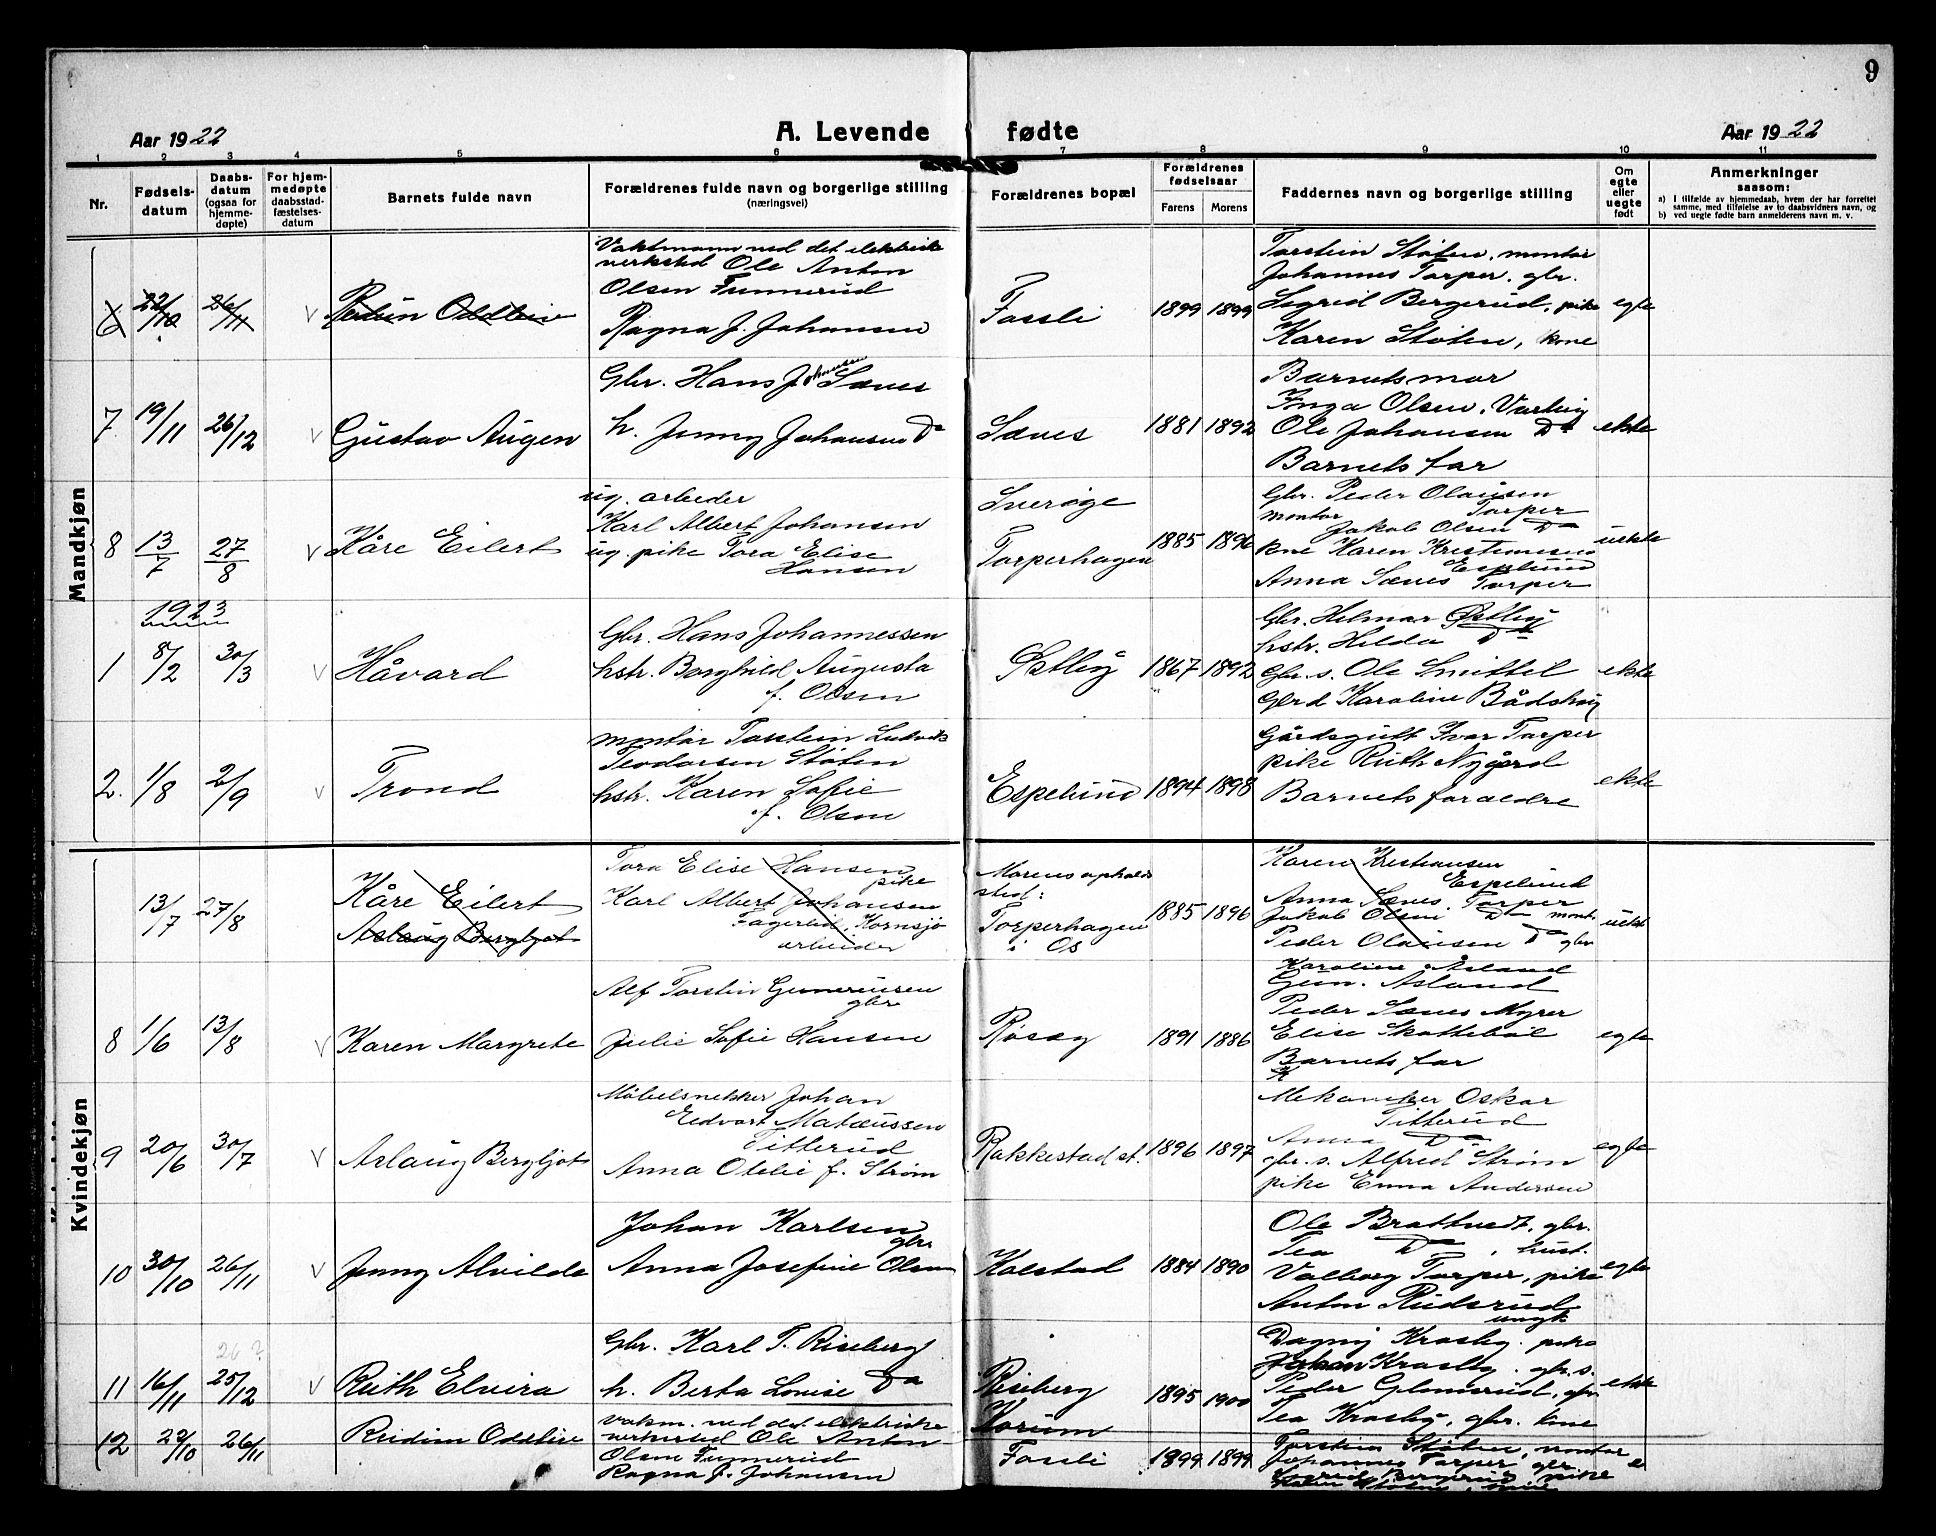 9
Aar 1922
A. Levende fødte
Aar 1922
1 2 3 4 5 6 7 8 9 10 11
Nr.
Fødselsdatum
Daabsdatum (ogsaa for hjemmedøpte)
For hjemmedøpte daabsstadfæstelsesdatum
Barnets fulde navn
Forældrenes fulde navn og borgerlige stilling
(næringsvei)
Forældrenes bopæl
Forældrenes fødselsaar
Farens
Morens
Faddernes navn og borgerlige stilling
Om egte eller uegte født
Anmerkninger
saasom:
a) I tilfælde av hjemmedaab, hvem der har forrettet samme, med tilføielse av to daabsvidners navn, og
b) ved uegte fødte barn anmelderens navn m. v.
Mandkjøn
6 22/10 26/11 v
Vaktmann ved det elektriske
verksted Ole Anton
Olsen Funnerud
Ragna J. Johansen
Fossli 1899 1899
Torstein Støten, montør
Johannes Torper, gbr.
Sigrid Bergerud, pike
Karen Støten, kone
egte
7. 19/11 26/12 v Gustav Augen
Gbr. Hans Johansen Sæves
h. Jenny Johansen Do
Sæves 1881 1892
Barnets mor
Inga Olsen,
Ole Johansen Do
Barnets far
ekte
8 13/7 27/8 v Kåre Eilert
ug. arbeder
Karl Albert Johansen
ug. pike Tora Elise
Hansen
Sverige
Torperhagen
1885 1896
Gbr. Peder Olausen
Torper
montør
Jakob Olsen Do
kne Karen Kristiansen
Espelund
Anna Sæves Torper
uekte
1923
1 8/2 30/3 v Håvard
Gbr. Hans Johannessen
hstr. Borghild Augusta
f. Olsen
Østby 1867 1892
Gbr. Helmar Østby
hstr. Hilda Do
Gbr. s. Ole Smittel
Gbrd Karoline Bådshaug
ekte
2. 1/8 2/9 v Trond
montør Torstein Ludvik
Teodorsen Støten
hstr. Karen Sofie
f. Olsen
Espelund 1894 1898
Gårdsgutt Ivar Torper
pike Ruth Nygård
Barnets foraeldre
ekte
Kvindekjøn
13/7 27/8
Kåre Eilert
Aslaug Bergljot
Tora Elise Hansen
pike
Karl Albert Johansen
Fagerlid, Kornsjø
arbeider
Morens opholdssted:
Torperhagen
i Os
1885 1896
Karen Kristiansen
Espelund
Anna Sæves, Torper
Jakob Olsen Do mont.
Peder Olausen Do gbr
uekt
8 1/6 13/8 v Karen Margrete
Alf Torstin Gunneriusen
gbr
Julie Sofie Hansen
Røsæg 1891 1886
Karoline Åsland
Gun. Åsland
Peder Sæves Myrer
Elise Skottebøl
Barnets far
egte
9 20/6 30/7 v Aslaug Bergljot
Møbelsnekker Johan
Edvart Matæussen
Titterud
Anna Otelie f. Strøm
Rakkestad st. 1896 1897
Mekaniker Oskar
Titterud
Anna Do
gbr. s. Alfred Strøm
pike Emma Andersen
egte
10 30/10 26/11 v Jenny Alvilde
Johan Karlsen
gbr.
Anna Josefine Olsen
Kolstad 1884 1890
Ole Brattvedt, gbr.
Tea Do, hust.
Valborg Torper, pike
Anton Rudsrud
ungk
egte
26?
11 16/11 25/12 v Ruth Elvira
Gbr. Karl T. Riseberg
h. Berta Lovise Do
Riseberg
Korum
1895 1900
Dagny Krosby. pike
Johan Krosby. gbr. s.
Peder Glomsrud, gbr
Tea Krosby, gbr. kone
ekte
12 22/10 26/11
Vakm. ved det elektriske
verksted Ole Anton
Olsen Funnerud
Ragna J. Johansen
Fossli 1899 1899
Torstein Støten, montør
Johannes Torper, gbr.
Sigrid Bergerud, pike
Karen Støten, kone
e